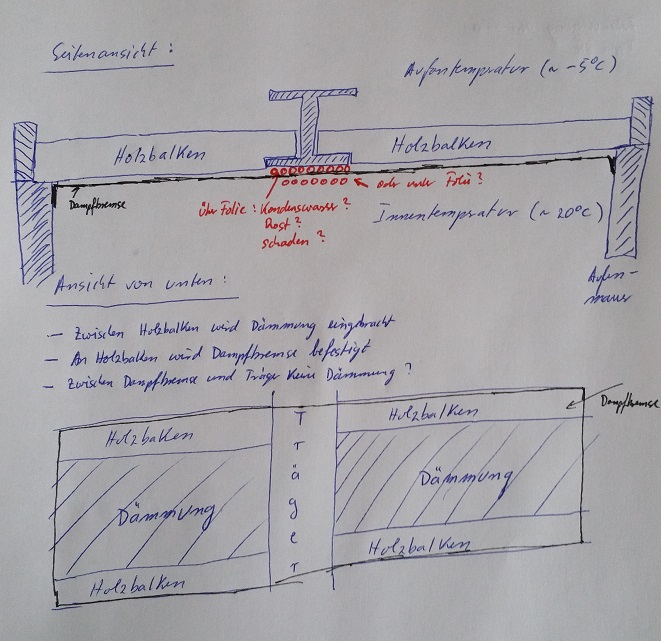 Seitenansicht :
Außentempratur (~ -5°C)
Holzbalken
Holzbalken
Dampfbremse
oder unter Folie?
über Folie : Kondenswasser?
Rost?
schaden?
Innentempratur (~ 20°C)
Außen-
mauer
Ansicht von unten :
- Zwischen Holzbalken wird Dämmung eingebracht
- An Holzbalken wird Dampfbremse befestigt
- Zwischen Dampfbremse und Träger keine Dämmung?
Dampfbremse
Holzbalken
Holzbalken
Träger
Dämmung
Dämmung
Holzbalken
Holzbalken